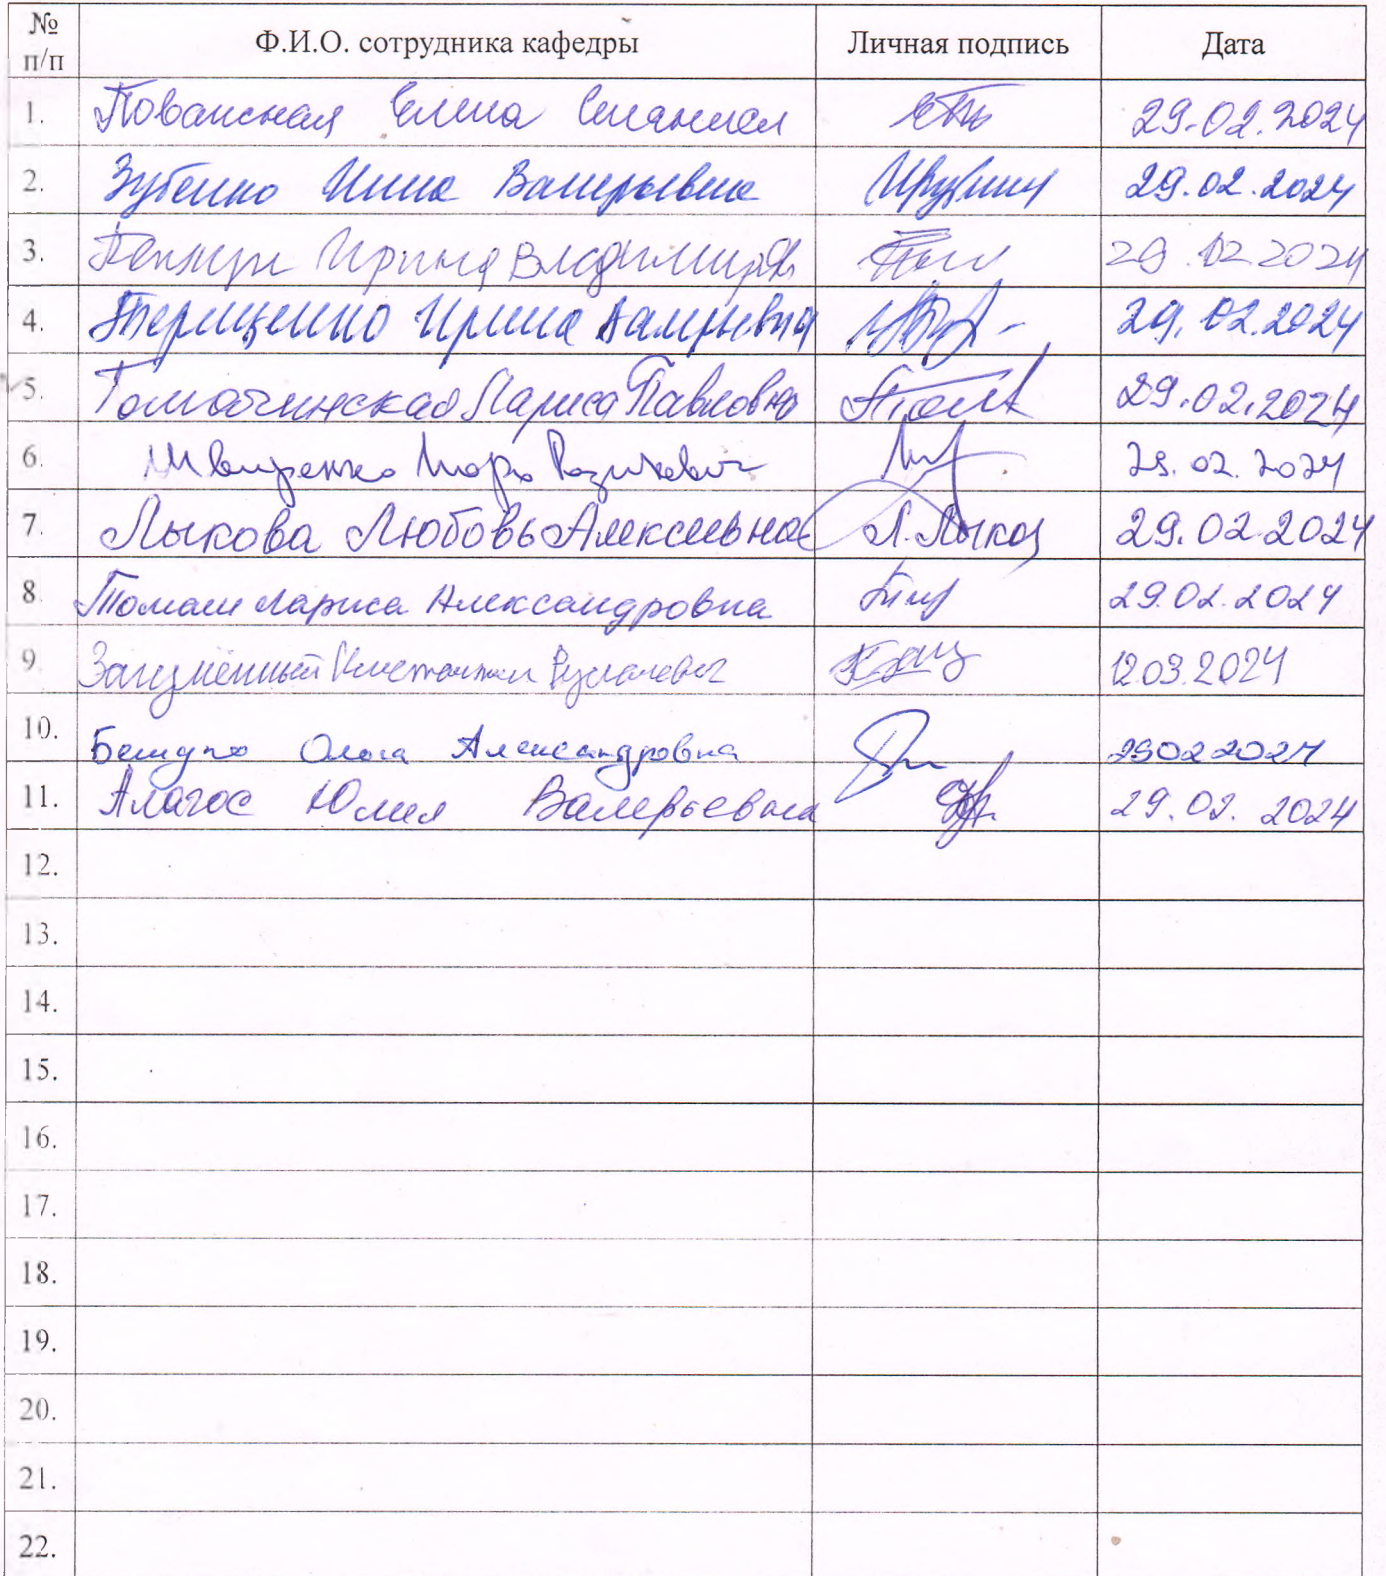 № п/п Ф.И.О. сотрудника кафедры Личная подпись Дата
1. Елена 29.02.2024
2. Зубенко Инна Валерьевна 29.02.2024
3. Ирина Владимировна 29.02.2024
4. Терещенко Ирина Валерьевна 29.02.2024
5. Томачинская Лариса Павловна 29.02.2024
6. 29.02.2024
7. Лыкова Любовь Алексеевна Л. Лыкова 29.02.2024
8. Томаш Лариса Александровна 29.02.2024
9. Константин Русланович 12.03.2024
10. Ольга Александровна 29022024
11. Алагос Юлия Валерьевна 29.02.2024
12.
13.
14.
15.
16.
17.
18.
19.
20.
21.
22.